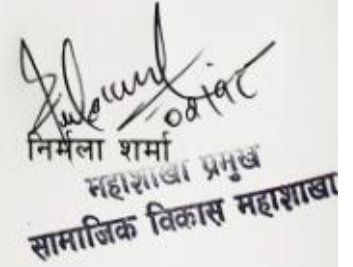 निर्मला शर्मा
महाशाखा प्रमुख
सामाजिक विकास महाशाखा